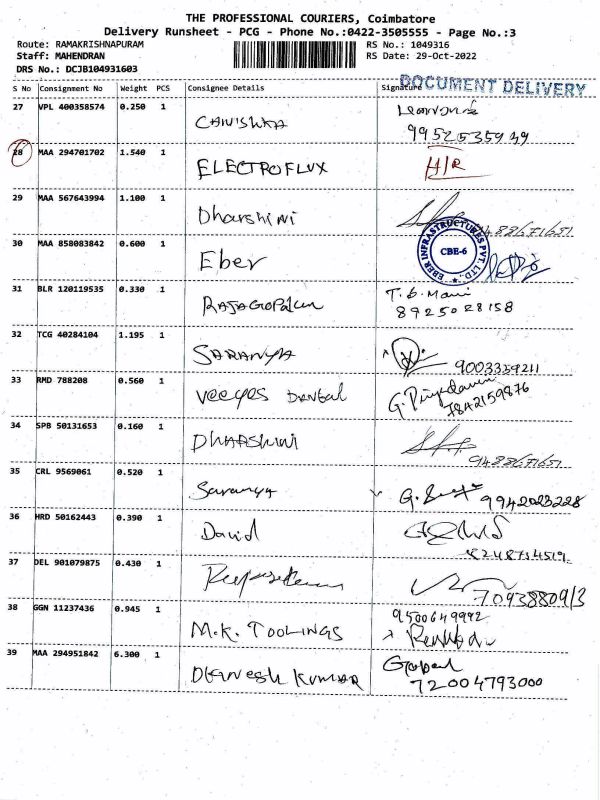 THE PROFESSIONAL COURIERS, Coimbatore
Delivery Runsheet - PCG - Phone No.:0422-3505555 - Page No.:3
Route: RAMAKRISHNAPURAM RS No.: 1049316
Staff: MAHENDRAN RS Date: 29-Oct-2022
DRS No.: DCJB104931603
DOCUMENT DELIVERY
S No Consignment No Weight PCS Consignee Details Signature
27 VPL 400358574 0.250 1 CANISHKA
9952535939
28 MAA 294701702 1.540 1 ELECTROFLUX H/R
29 MAA 567643994 1.100 1 Dharshini 9488671651
30 MAA 858083842 0.600 1 Eber
EBER INFRASTRUCTURES PVT. LTD. CBE-6
31 BLR 120119535 0.330 1 RAJAGOPALan T.S. Mani
8925028158
32 TCG 40284104 1.195 1 SARANYA 9003359211
33 RMD 788208 0.560 1 Veeyes Dental G. Priyadarsini
7842159876
34 SPB 50131653 0.160 1 DHARSHINI
9488671651
35 CRL 9569061 0.520 1 Saranya 9942023228
36 HRD 50162443 0.390 1 David
8248714519
37 DEL 901079875 0.430 1 7093880913
38 GGN 11237436 0.945 1 M.K. TOOLINGS 9500649992
39 MAA 294951842 6.300 1 DHANESH KUMAR Gopal
72004793000